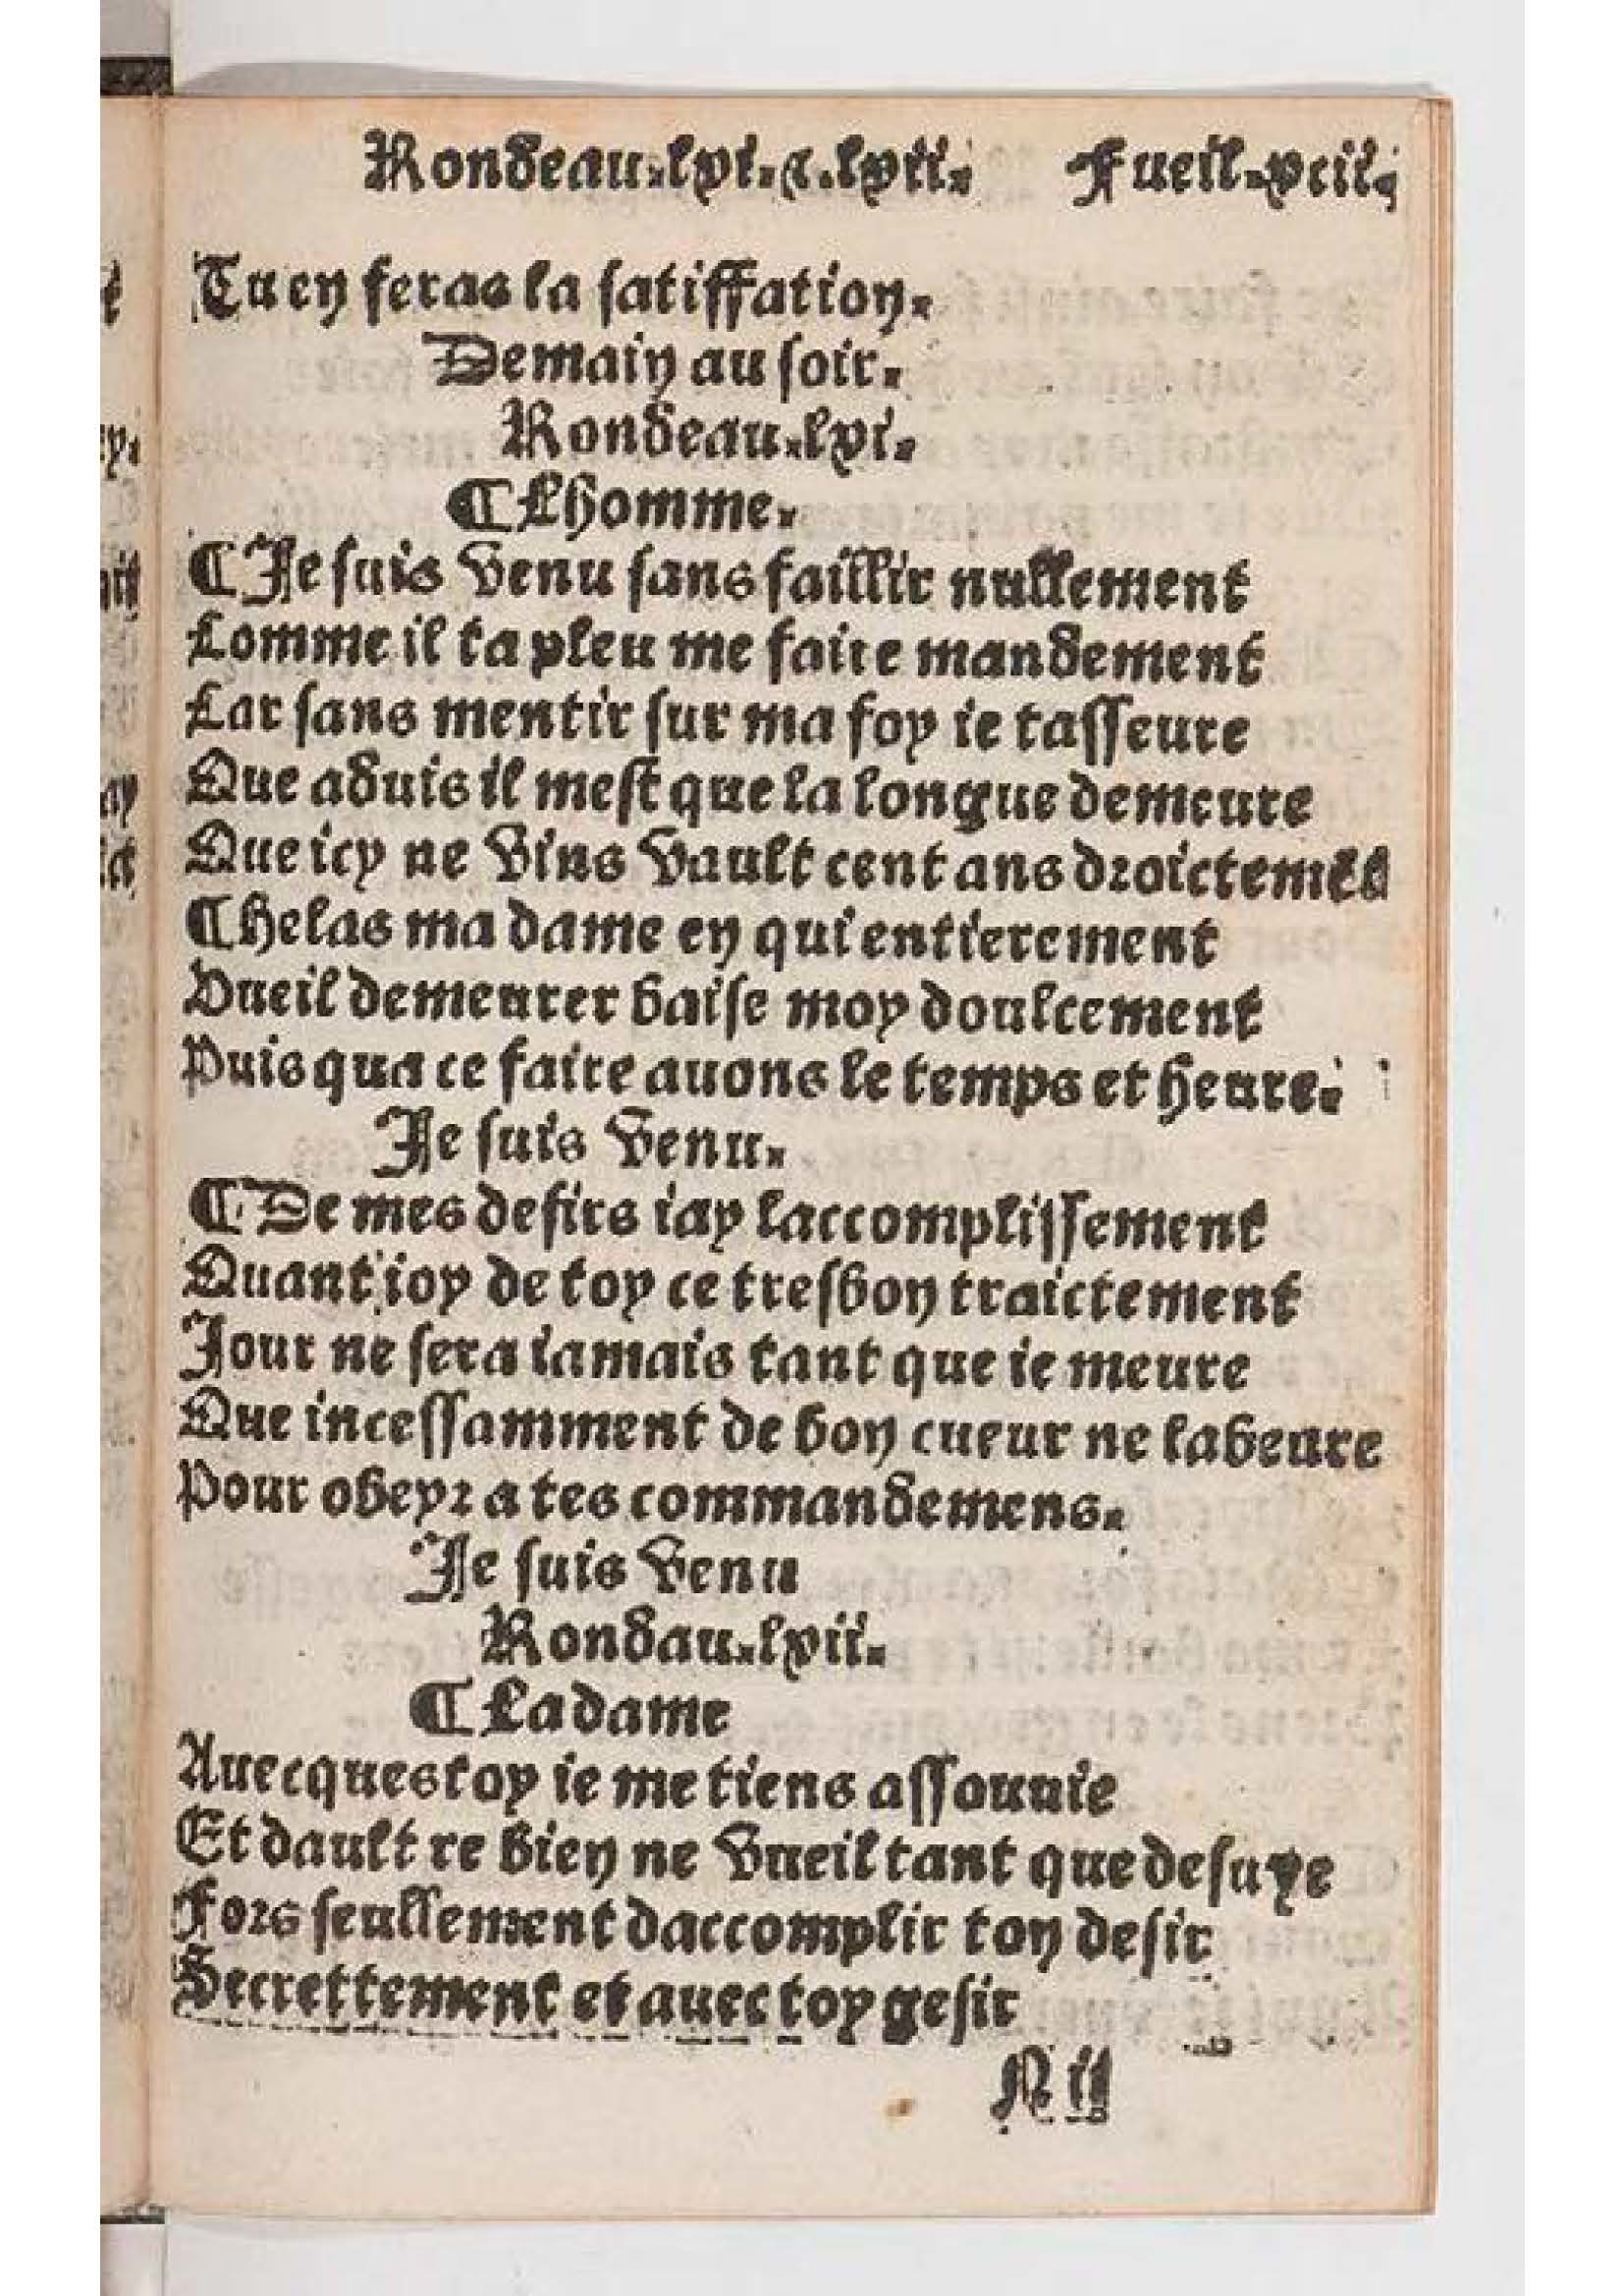 Rondeau.lvi.⁊.lvii. Fueil.xcii.
Tu en feras la satiffation.
Demain au soir.
Rondeau.lvi.
¶ Lhomme.
¶ Je suis venu sans faillir nullement
Comme il ta pleu me faire mandement
Car sans mentir sur ma foy ie tasseure
Que aduis il mest que la longue demeure
Que icy ne vins vault cent ans droictemẽt
¶ helas ma dame en qui entierement
Vueil demeurer baise moy doulcement
Puis qua ce faire auons le temps et heure.
Je suis venu.
¶ De mes desirs iay laccomplissement
Quant ioy de toy ce tresbon traictement
Jour ne sera iamais tant que ie meure
Que incessamment de bon cueur ne labeure
Pour obeyr a tes commandemens.
Je suis venu
Rondau.lvii.
¶ La dame
Auecques toy ie me tiens assouuie
Et dault re bien ne vueil tant que desuye
Fors seullement daccomplir ton desir
Secrettement et auec toy gesir
N ii